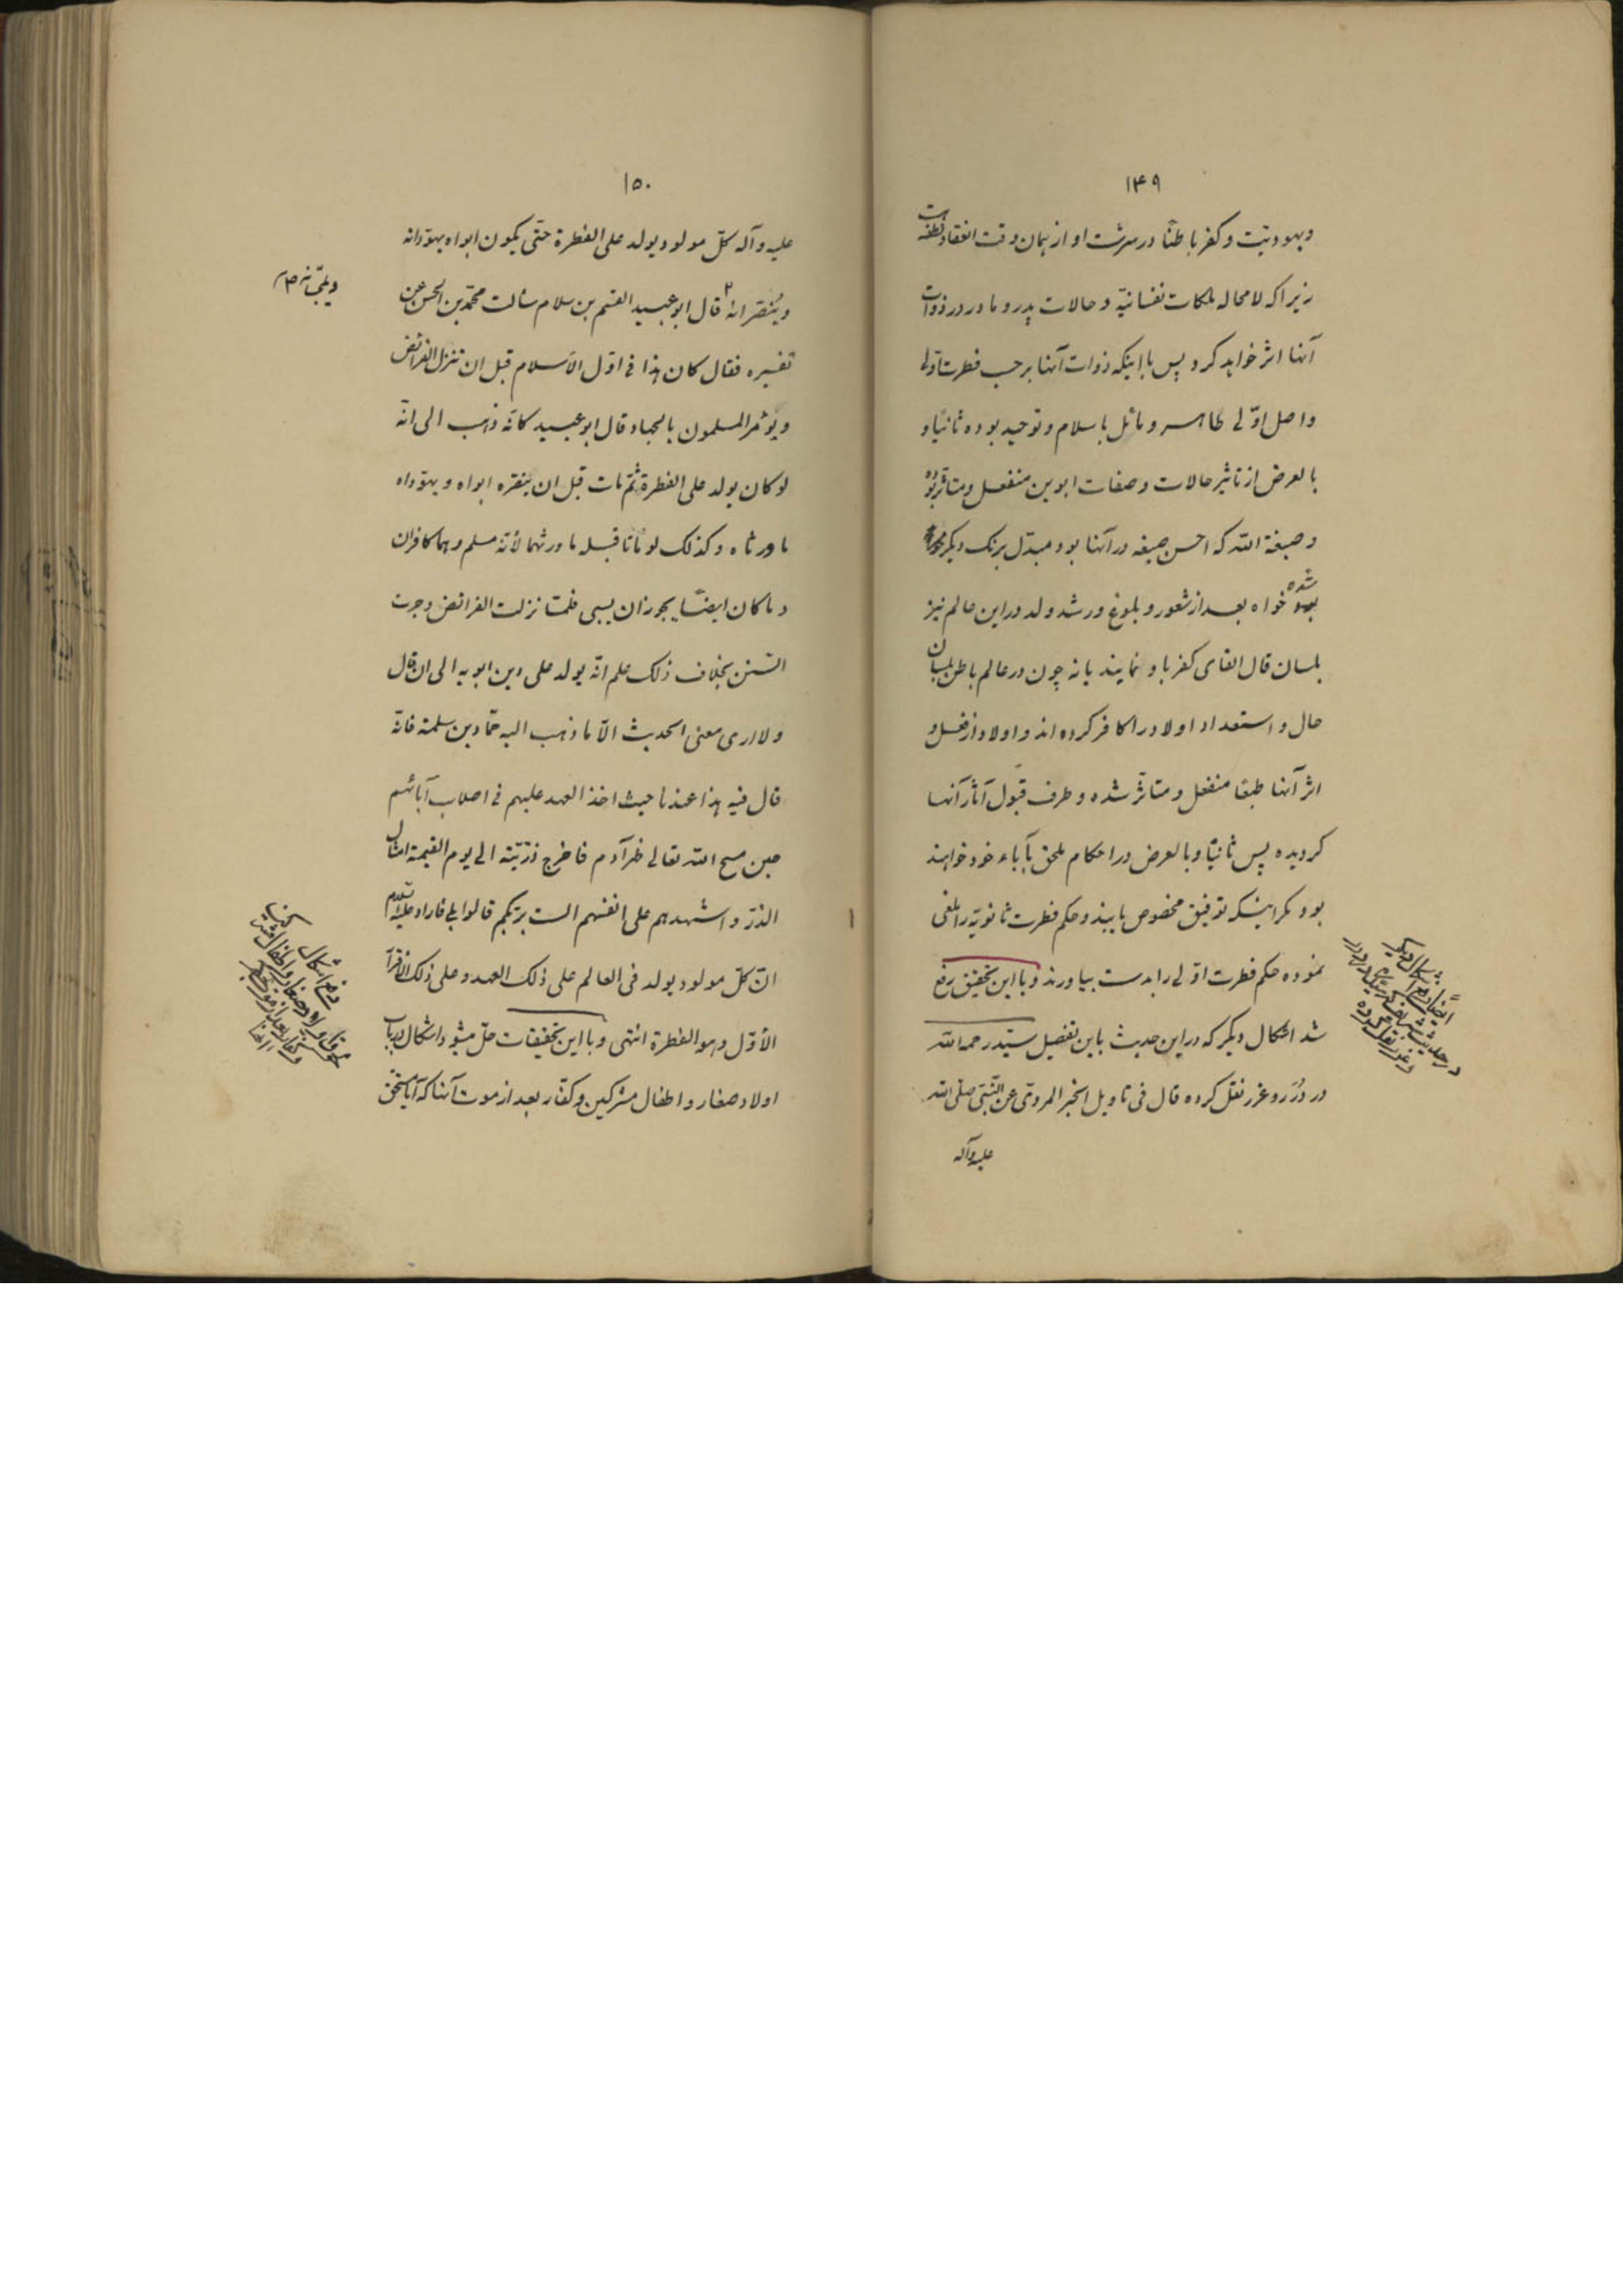 ۱۴۹
ویهودیّت و کفر باطنًا در سرشت او از همان وقت انعقاد نطفه است
زیرا که لامحاله ملکات نفسانیّه و حالات پدر و مادر در ذوات
آنها اثر خواهد کرد پس با اینکه ذوات آنها بر حسب فطرت اوّلی
واصل اوّلی طاهر و مائل باسلام و توحید بوده ثانیًا و
بالعرض از تاثیر حالات و صفات ابوین منفعل و متاثر بوده
و صبغة اللّه که احسن صبغه در آنها بود مبدّل برنک دیکر
شده خواه بعد از شعور و بلوغ و رشد ولد در این عالم نیز
بلسان قال القای کفر باو نمایند یا نه چون در عالم باطن بلسان
حال و استعداد اولاد را کافر کرده اند و اولاد از فعل و
اثر آنها طبعًا منفعل و متاثّر شده و طرف قبول آثار آنها
کردیده پس ثانیًا و بالعرض در احکام ملحق بآباء خود خواهند
بود مکر اینکه توفیق مخصوص یابند و حکم فطرت ثانویّه را ملغی
نموده حکم فطرت اوّلی را بدست بیاورند و با این تحقیق رفع
شد اشکال دیکر که در این حدیث باین تفصیل سیّد رحمه اللّه
در دُرَر و غرر نقل کرده قال فی تاویل الخبر المروی عن النّبی صلّی اللّه
علیه وآله
۱۵۰
علیه وآله کلّ مولود یولد علی الفطرة حتّی یکون ابواه یهوّدانه
وینصّرانه ۲ قال ابوعبید القسم بن سلام سألت محمّد بن الحسن عن
ویمجّسانه صح
تفسیره فقال کان هذا فی اوّل الأسلام قبل ان تنزل الفرائض
ویؤمر المسلمون بالجهاد قال ابوعبید کانّه ذهب الی انّه
لو کان یولد علی الفطرة ثمّ مات قبل ان ینصّره ابواه ویهوّداه
ما ورثاه وکذلک لو ماتا قبله ما ورثهما لأنّه مسلم وهما کافران
وما کان ایضًا یجوز ان یسبی فلمّا نزلت الفرائض وجرت
السّنن بخلاف ذلک علم انّه یولد علی دین ابویه الی ان قال
ولا اری معنی الحدیث الّا ما ذهب الیه حمّاد بن سلمة فانّه
قال فیه هذا عندنا حیث اخذ العهد علیهم فی اصلاب آبائهم
حین مسح اللّه تعالی ظهر آدم فاخرج ذرّیّته الی یوم القیمة امثال
الذرّ واشهدهم علی انفسهم الست بربّکم قالوا بلی فاراد علیه السلام
انّ کلّ مولود یولد فی العالم علی ذلک العهد وعلی ذلک الأقرار
الأوّل وهو الفطرة انتهی و با این تحقیقات حلّ میشود اشکال در باب
اولاد صغار و اطفال مشرکین و کفّار بعد از موت آنها که آیا مستحقّ